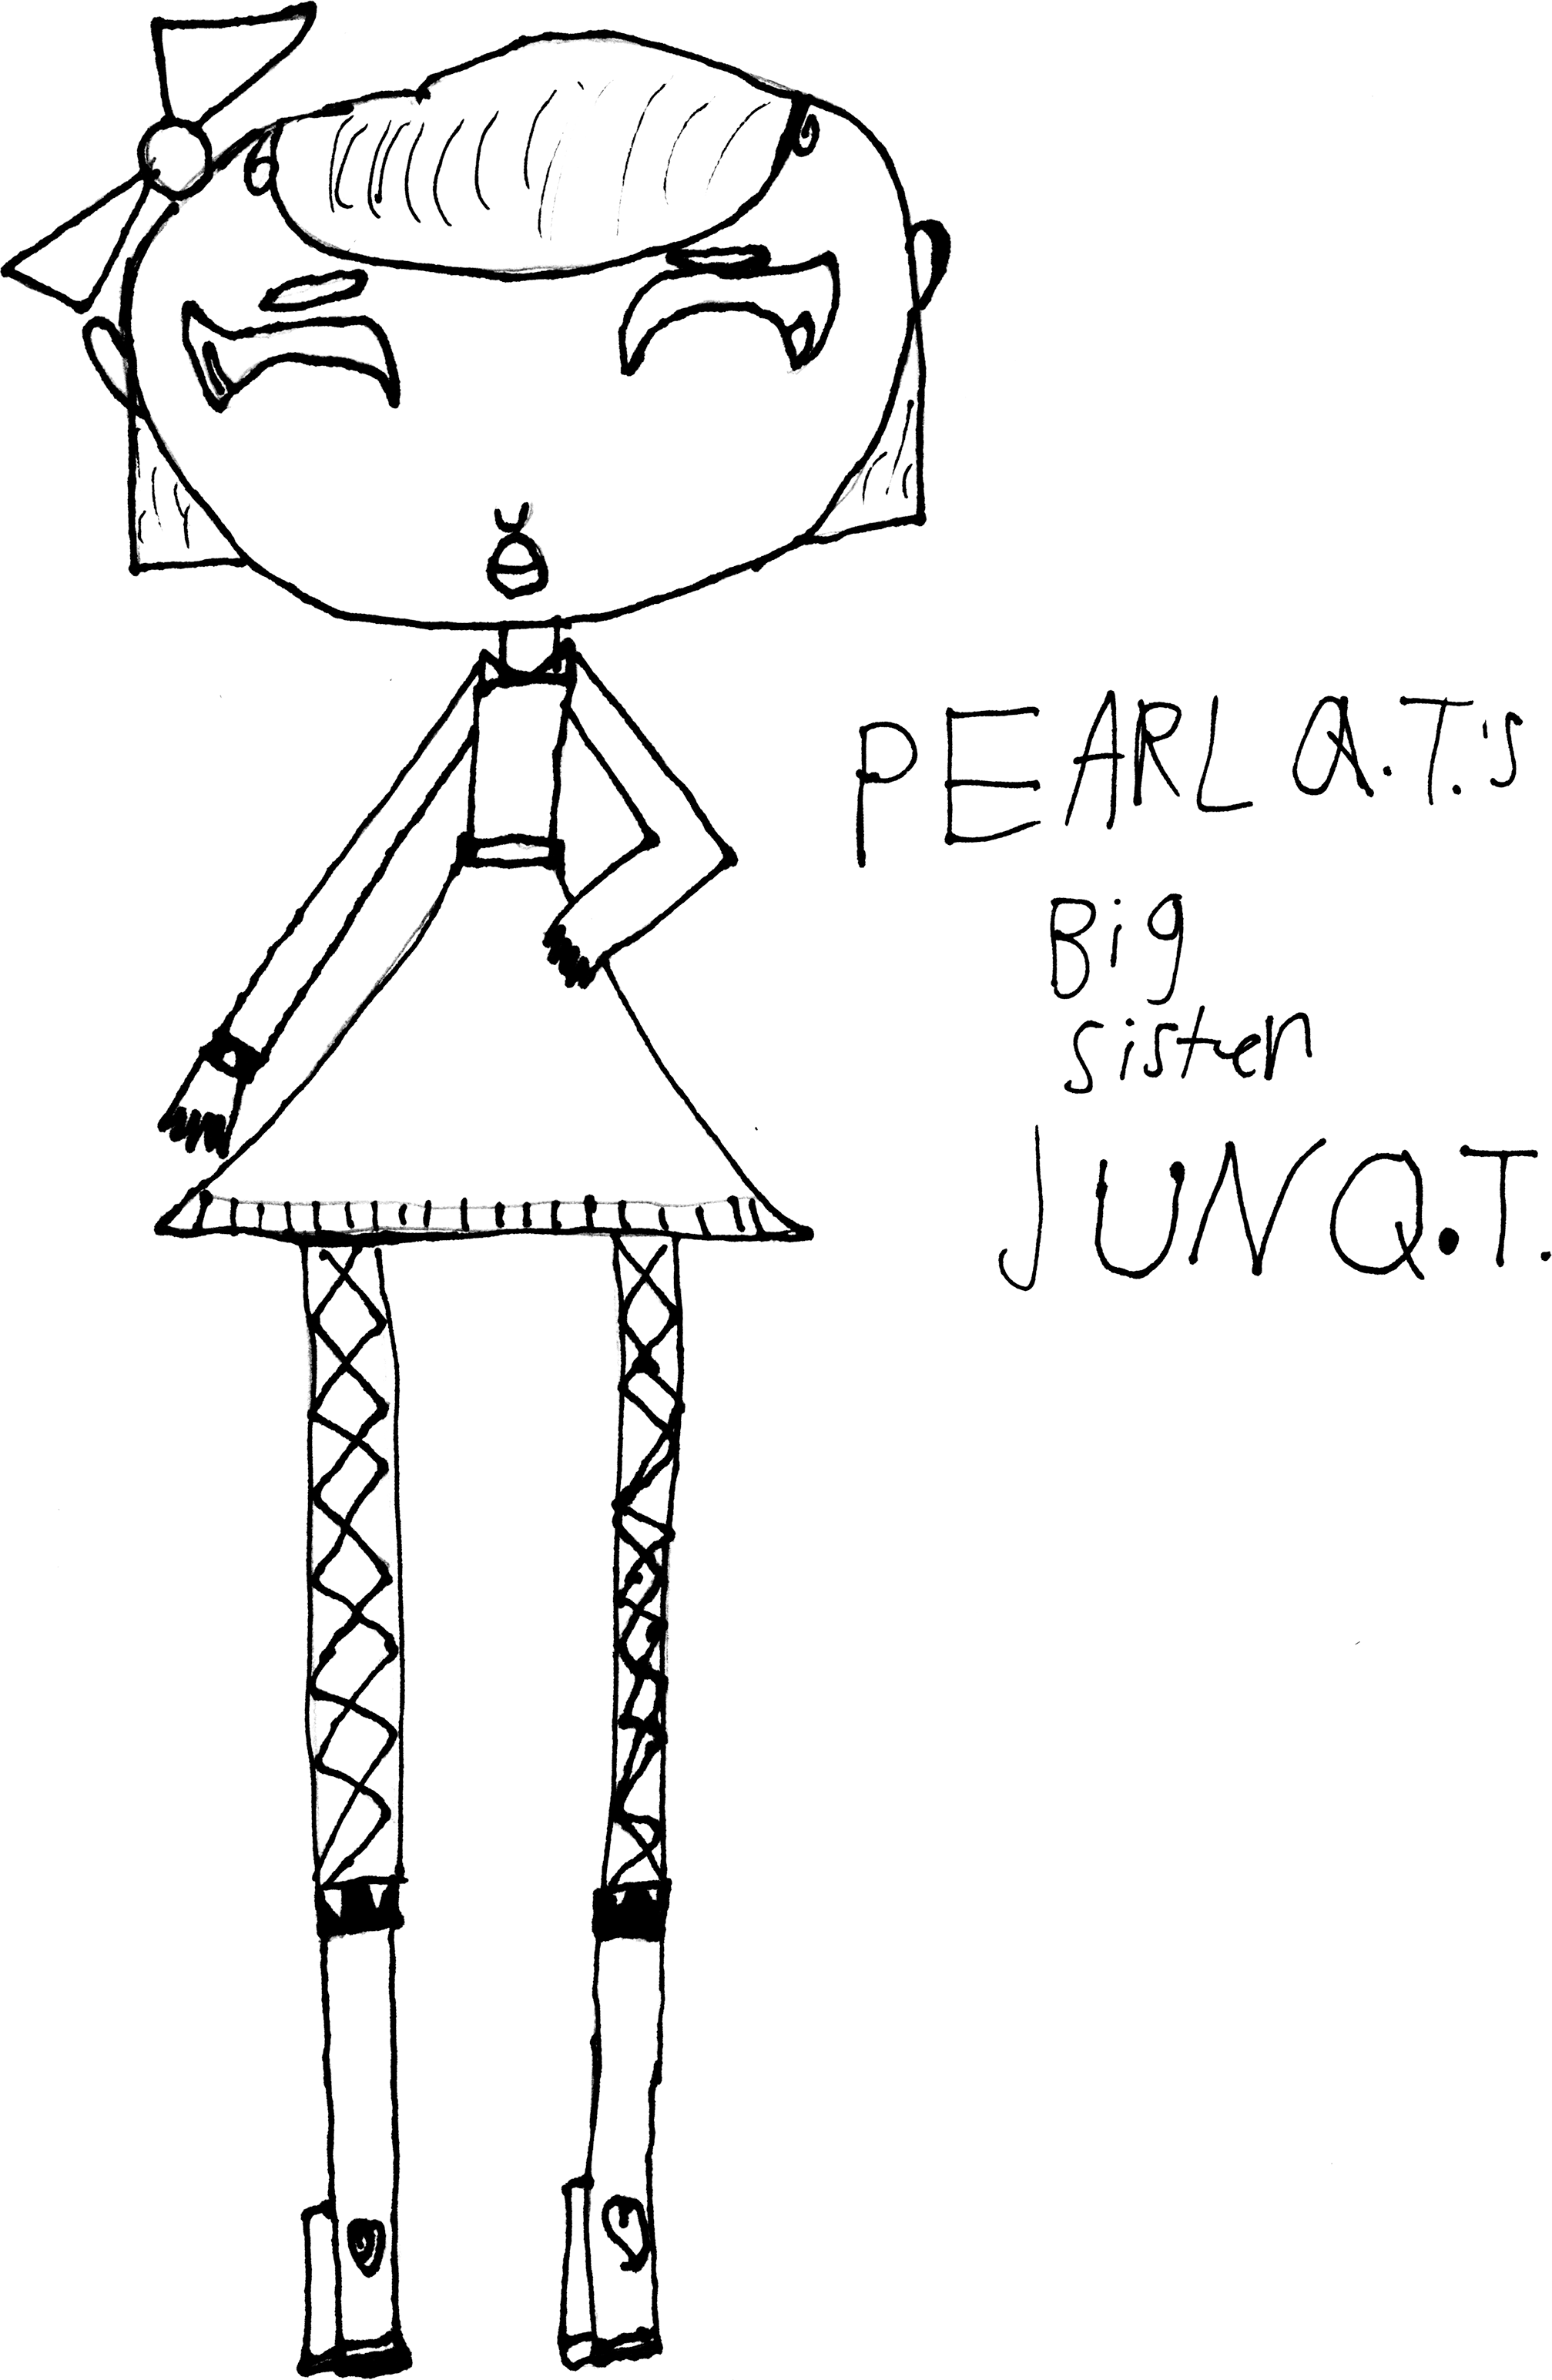 PEARL Q.T.'s
Big
sister
JUN Q.T.